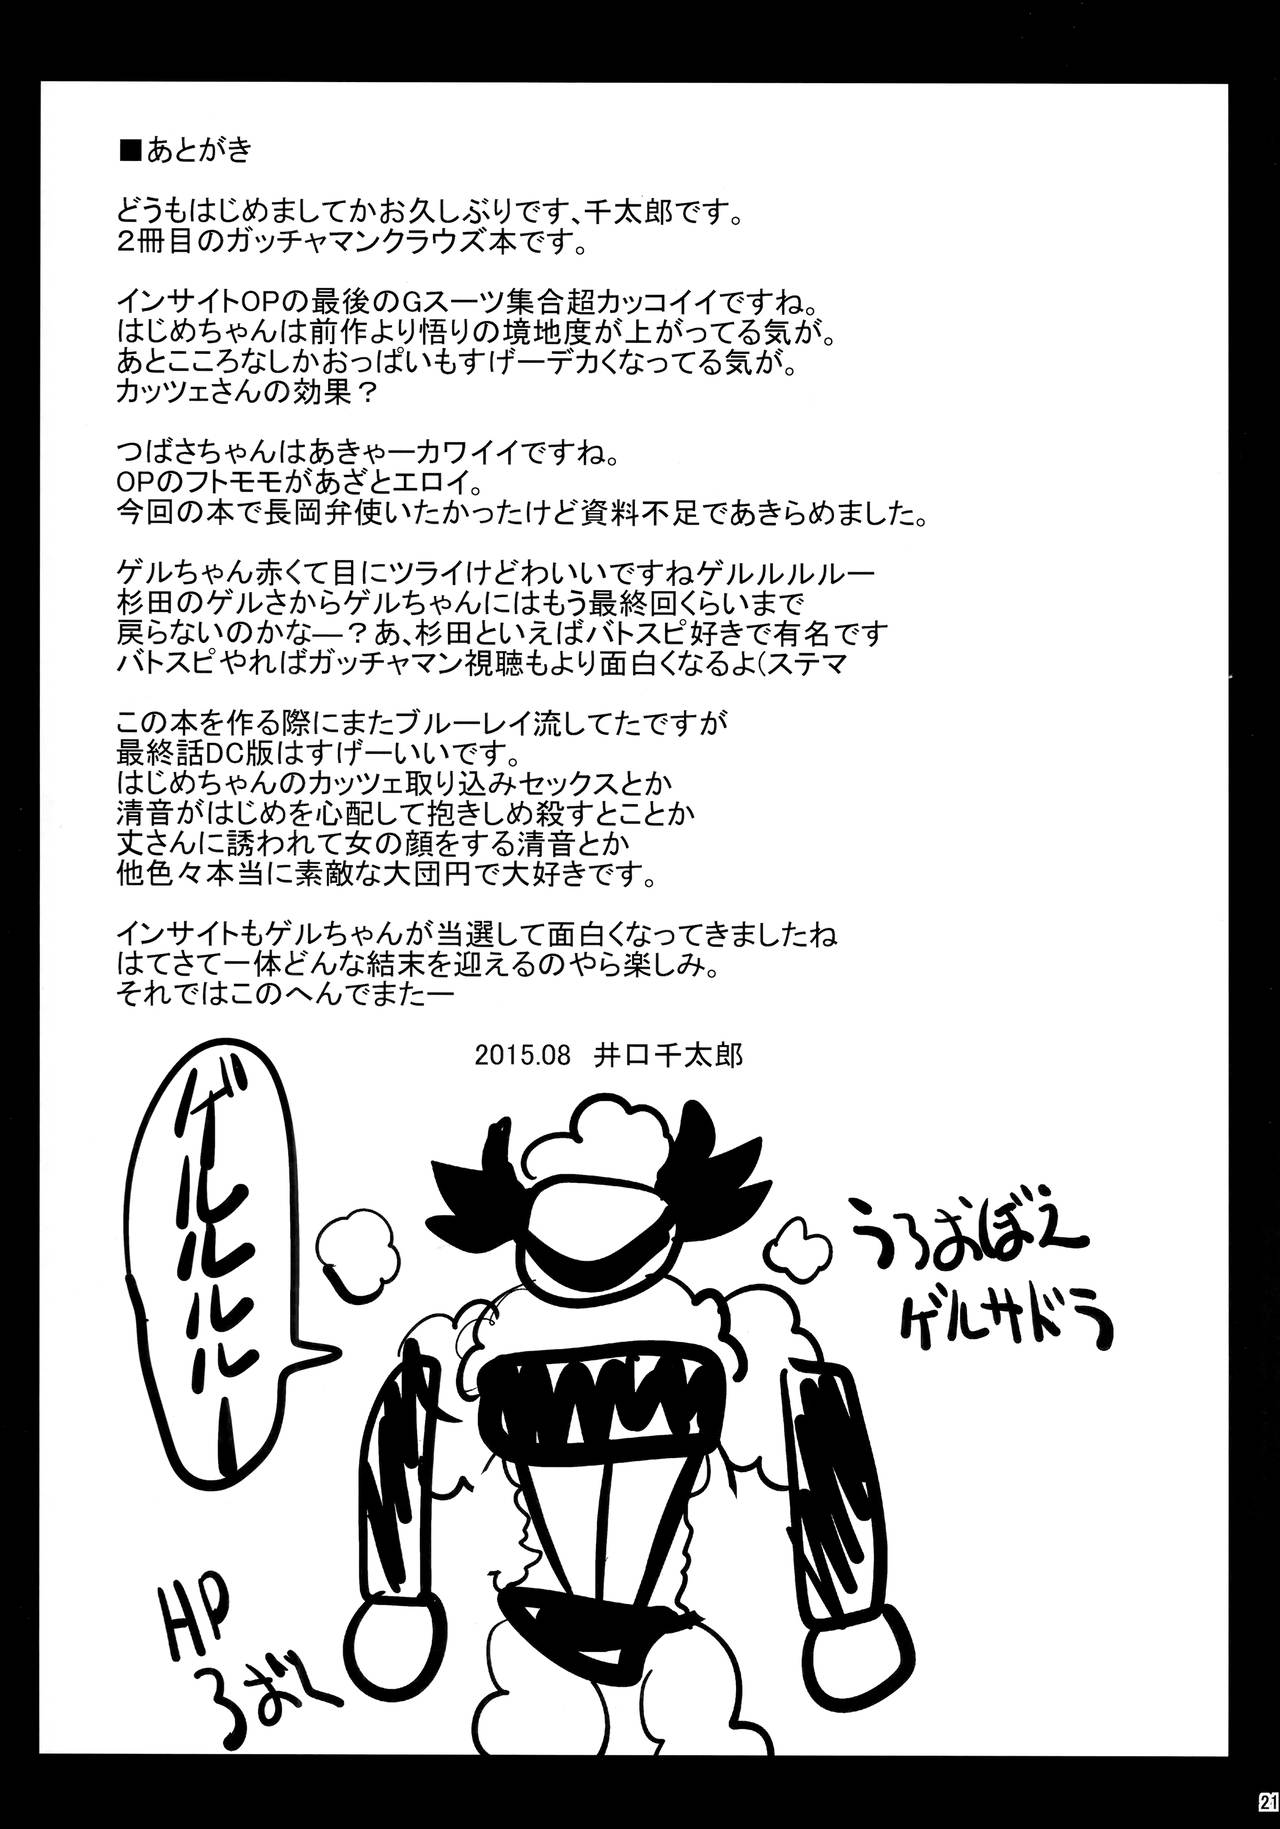 ■あとがき
どうもはじめましてかお久しぶりです、千太郎です。
２冊目のガッチャマンクラウズ本です。
インサイトOPの最後のGスーツ集合超カッコイイですね。
はじめちゃんは前作より悟りの境地度が上がってる気が。
あとこころなしかおっぱいもすげーデカくなってる気が。
カッツェさんの効果？
つばさちゃんはあきゃーカワイイですね。
OPのフトモモがあざとエロイ。
今回の本で長岡弁使いたかったけど資料不足であきらめました。
ゲルちゃん赤くて目にツライけどわいいですねゲルルルルー
杉田のゲルさからゲルちゃんにはもう最終回くらいまで
戻らないのかな―？あ、杉田といえばバトスピ好きで有名です
バトスピやればガッチャマン視聴もより面白くなるよ(ステマ
この本を作る際にまたブルーレイ流してたですが
最終話DC版はすげーいいです。
はじめちゃんのカッツェ取り込みセックスとか
清音がはじめを心配して抱きしめ殺すとことか
丈さんに誘われて女の顔をする清音とか
他色々本当に素敵な大団円で大好きです。
インサイトもゲルちゃんが当選して面白くなってきましたね
はてさて一体どんな結末を迎えるのやら楽しみ。
それではこのへんでまたー
2015.08　井口千太郎
ゲルルルルー
うろおぼえ
ゲルサドラ
HP
ろおく
21